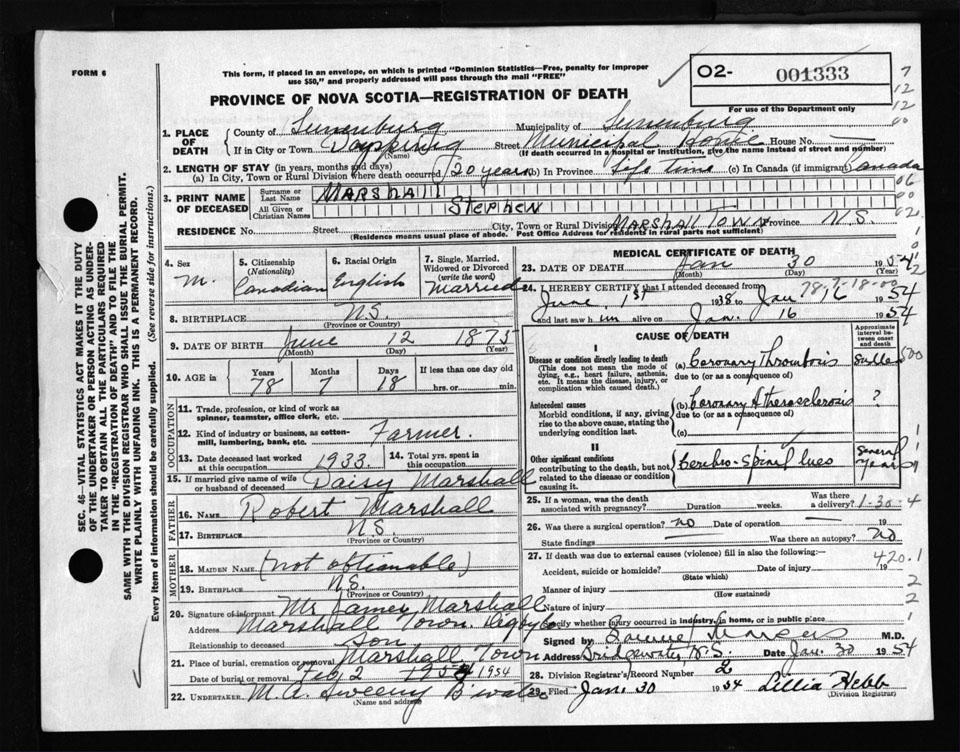 FORM 6
This form, if placed in an envelope, on which is printed "Dominion Statistics—Free, penalty for improper
use $50," and properly addressed will pass through the mail "FREE"
02- 001333
For use of the Department only
7
12
12
00
PROVINCE OF NOVA SCOTIA—REGISTRATION OF DEATH
1. PLACE OF DEATH
County of Lunenburg Municipality of Lunenburg
If in City or Town Dayspring Street Municipal Home House No.
(Name) (If death occurred in a hospital or institution, give the name instead of street and number)
2. LENGTH OF STAY (in years, months and days)
(a) In City, Town or Rural Division where death occurred 20 years (b) In Province life time (c) In Canada (if immigrant) Canada
3. PRINT NAME OF DECEASED
Surname or Last Name MARSHALL
All Given or Christian Names STEPHEN
RESIDENCE No. Street City, Town or Rural Division MARSHALL TOWN Province N.S.
(Residence means usual place of abode. Post Office Address for residents in rural parts not sufficient)
4. Sex M.
5. Citizenship (Nationality) Canadian
6. Racial Origin English
7. Single, Married, Widowed or Divorced (write the word) Married
8. BIRTHPLACE N.S.
(Province or Country)
9. DATE OF BIRTH June 12 1875
(Month) (Day) (Year)
10. AGE in Years 78 Months 7 Days 18 If less than one day old hrs. or min.
OCCUPATION
11. Trade, profession, or kind of work as spinner, teamster, office clerk, etc.
12. Kind of industry or business, as cotton-mill, lumbering, bank, etc. Farmer.
13. Date deceased last worked at this occupation 1933.
14. Total yrs. spent in this occupation
15. If married give name of wife or husband of deceased Daisy Marshall
FATHER
16. NAME Robert Marshall
17. BIRTHPLACE N.S.
(Province or Country)
MOTHER
18. MAIDEN NAME (not obtionable)
19. BIRTHPLACE N.S.
(Province or Country)
20. Signature of informant Mr James Marshall
Address Marshall Town. Digby Co
Relationship to deceased Son
21. Place of burial, cremation or removal Marshall Town
Date of burial or removal Feb, 2 1954
22. UNDERTAKER M.A. Sweeny B'water
(Name and address)
MEDICAL CERTIFICATE OF DEATH
23. DATE OF DEATH Jan 30 1954
(Month) (Day) (Year)
78-7-18-00
24. I HEREBY CERTIFY that I attended deceased from
June 1st 1938 to Jan 16 1954
and last saw him alive on Jan. 16 1954
CAUSE OF DEATH
Approximate interval between onset and death
I
Disease or condition directly leading to death
(This does not mean the mode of dying, e.g., heart failure, asthenia, etc. It means the disease, injury, or complication which caused death.
(a) Coronary Thrombosis Sudden
due to (or as a consequence of)
Antecedent causes
Morbid conditions, if any, giving rise to the above cause, stating the underlying condition last.
(b) Coronary Atherosclerosis ?
due to (or as a consequence of)
(c)
II
Other significant conditions
contributing to the death, but not related to the disease or condition causing it.
Cerebro-Spinal lues Several years
25. If a woman, was the death associated with pregnancy? Duration weeks. Was there a delivery? 1-30-4
26. Was there a surgical operation? no Date of operation 19
State findings Was there an autopsy? no
27. If death was due to external causes (violence) fill in also the following:—
420.1
Accident, suicide or homicide? Date of injury 19
(State which)
Manner of injury
(How sustained)
Nature of injury
Specify whether injury occurred in industry, in home, or in public place
Signed by M.D.
Address Bridgewater, N.S. Date Jan. 30 1954
28. Division Registrar's Record Number 2
29. Filed Jan. 30 1954 Lillia Hebb
(Division Registrar)
SEC. 46—VITAL STATISTICS ACT MAKES IT THE DUTY
OF THE UNDERTAKER OR PERSON ACTING AS UNDER-
TAKER TO OBTAIN ALL THE PARTICULARS REQUIRED
IN THE "REGISTRATION OF DEATH" AND TO FILE THE
SAME WITH THE DIVISION REGISTRAR WHO SHALL ISSUE THE BURIAL PERMIT.
WRITE PLAINLY WITH UNFADING INK. THIS IS A PERMANENT RECORD.
Every item of information should be carefully supplied. (See reverse side for instructions.)